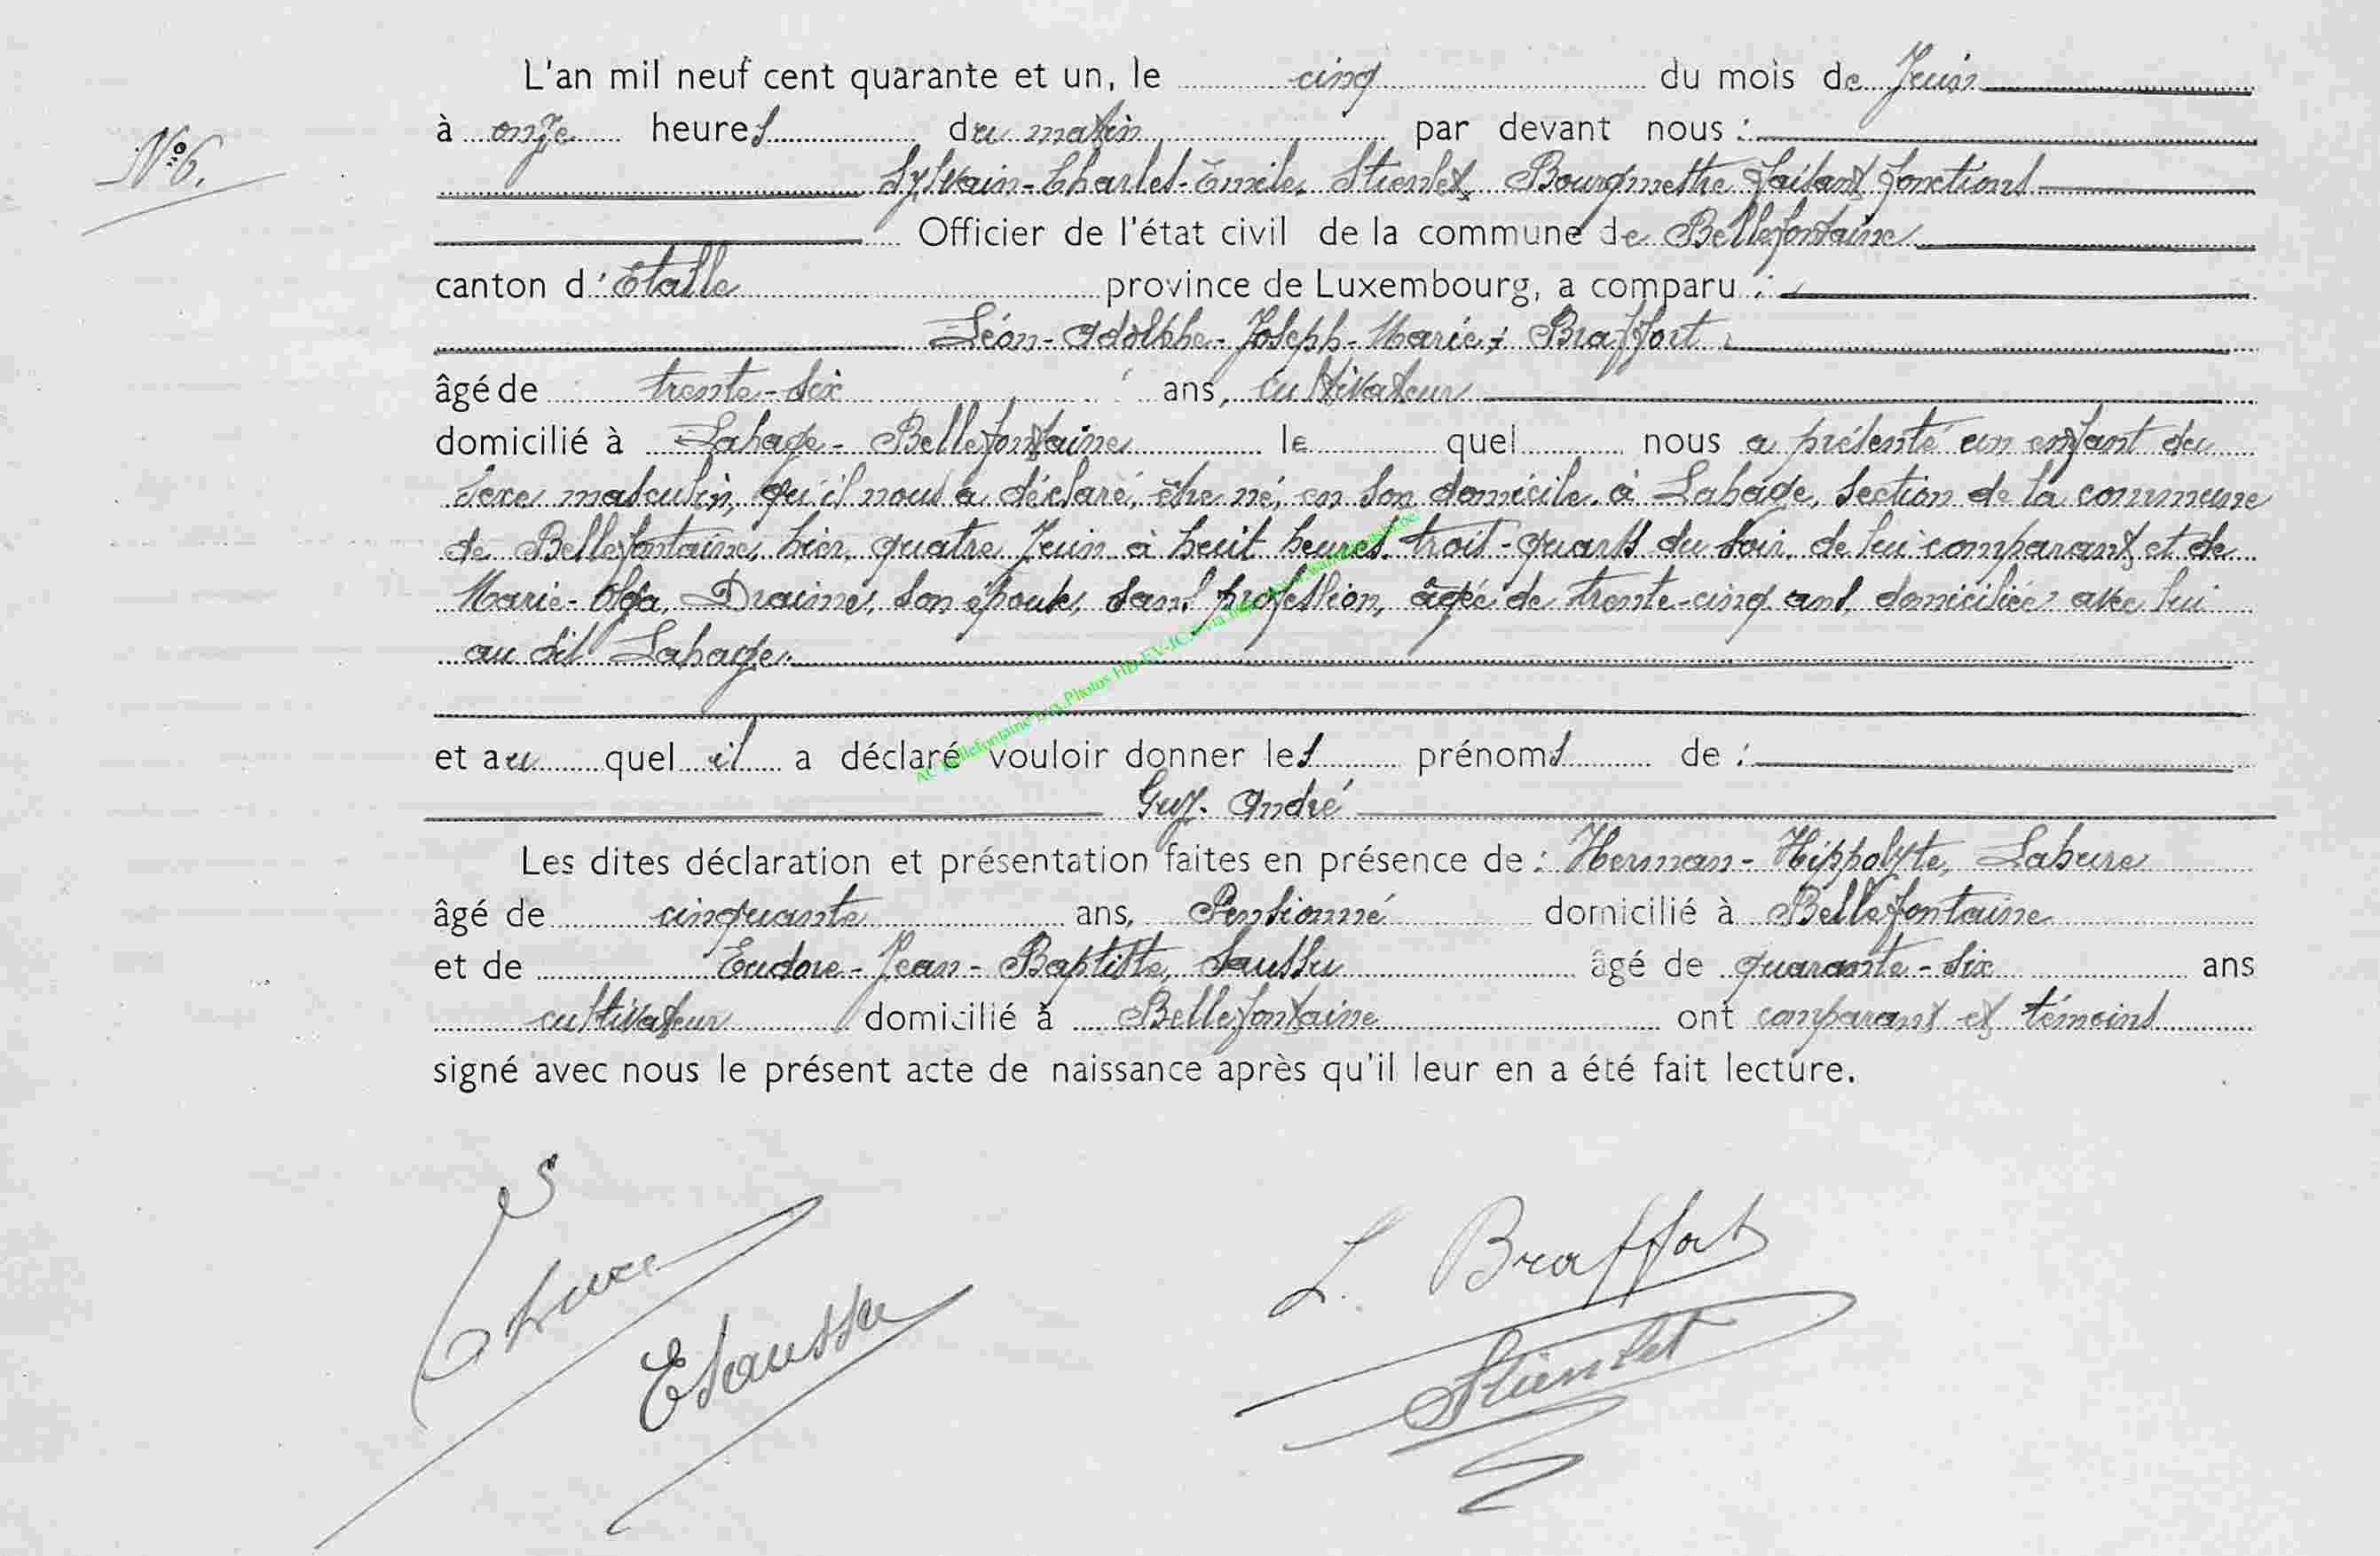 L'an mil neuf cent quarante et un, le cinq du mois de Juin
à onze heures du matin par devant nous :
N° 6.
Sylvain-Charles-Emile, Stienlet, Bourgmestre faisant fonctions
Officier de l'état civil de la commune de Bellefontaine
canton d'Etalle province de Luxembourg, a comparu :
Léon-Adolphe-Joseph-Marie, Braffort,
âgé de trente-six ans, cultivateur
domicilié à Lahage-Bellefontaine lequel nous a présenté un enfant du
sexe masculin, qu'il nous a déclaré, être né, en son domicile, à Lahage, section de la commune
de Bellefontaine, hier, quatre Juin à huit heures trois-quarts du soir, de lui comparant et de
Marie-Olga, Draime, son épouse, sans profession, âgée de trente-cinq ans, domiciliée avec lui
au dit Lahage.
et auquel il a déclaré vouloir donner les prénoms de :
Guy-André
Les dites déclaration et présentation faites en présence de : Herman-Hippolyte, Lahure
âgé de cinquante ans, Pensionné domicilié à Bellefontaine
et de Eudore-Jean-Baptiste, Saussu âgé de quarante-six ans
cultivateur domicilié à Bellefontaine ont comparant et témoins
signé avec nous le présent acte de naissance après qu'il leur en a été fait lecture.
L. Braffort
ESaussu
Stienlet
AC Bellefontaine